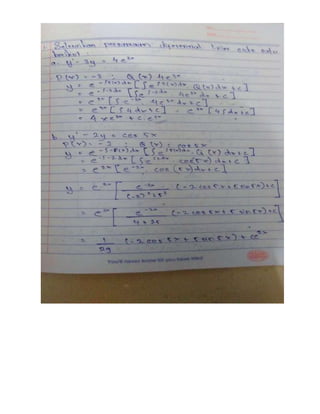 1. Selesaikan persamaan diferensial linier orde satu
berikut :
a. y' - 3y = 4e³ˣ
P(x) = -3 ; Q(x) 4e³ˣ
y = e^-∫P(x)dx [∫e^∫P(x)dx Q(x)dx + c]
= e^-∫-3dx [∫e^∫-3dx 4e³ˣ dx + c]
= e³ˣ [∫e^-3x 4e³ˣ dx + c]
= e³ˣ [∫4dx + c] = e³ˣ [4∫dx + c]
= 4xe³ˣ + c.e³ˣ
b. y' - 2y = cos 5x
P(x) = -2 Q(x) : cos 5x
y = e^-∫P(x)dx [∫e^∫P(x)dx Q(x)dx + c]
= e^-∫-2dx [∫e^∫-2dx cos(5x)dx + c]
= e^2x [e^-2x cos(5x)dx + c]
y = e^2x [e^-2x / (-2)²+5² (-2 cos 5x + 5 sin 5x) + c]
= e^2x [e^-2x / 4+25 (-2 cos 5x + 5 sin 5x) + c]
= 1/29 (-2 cos 5x + 5 sin 5x) + ce^2x